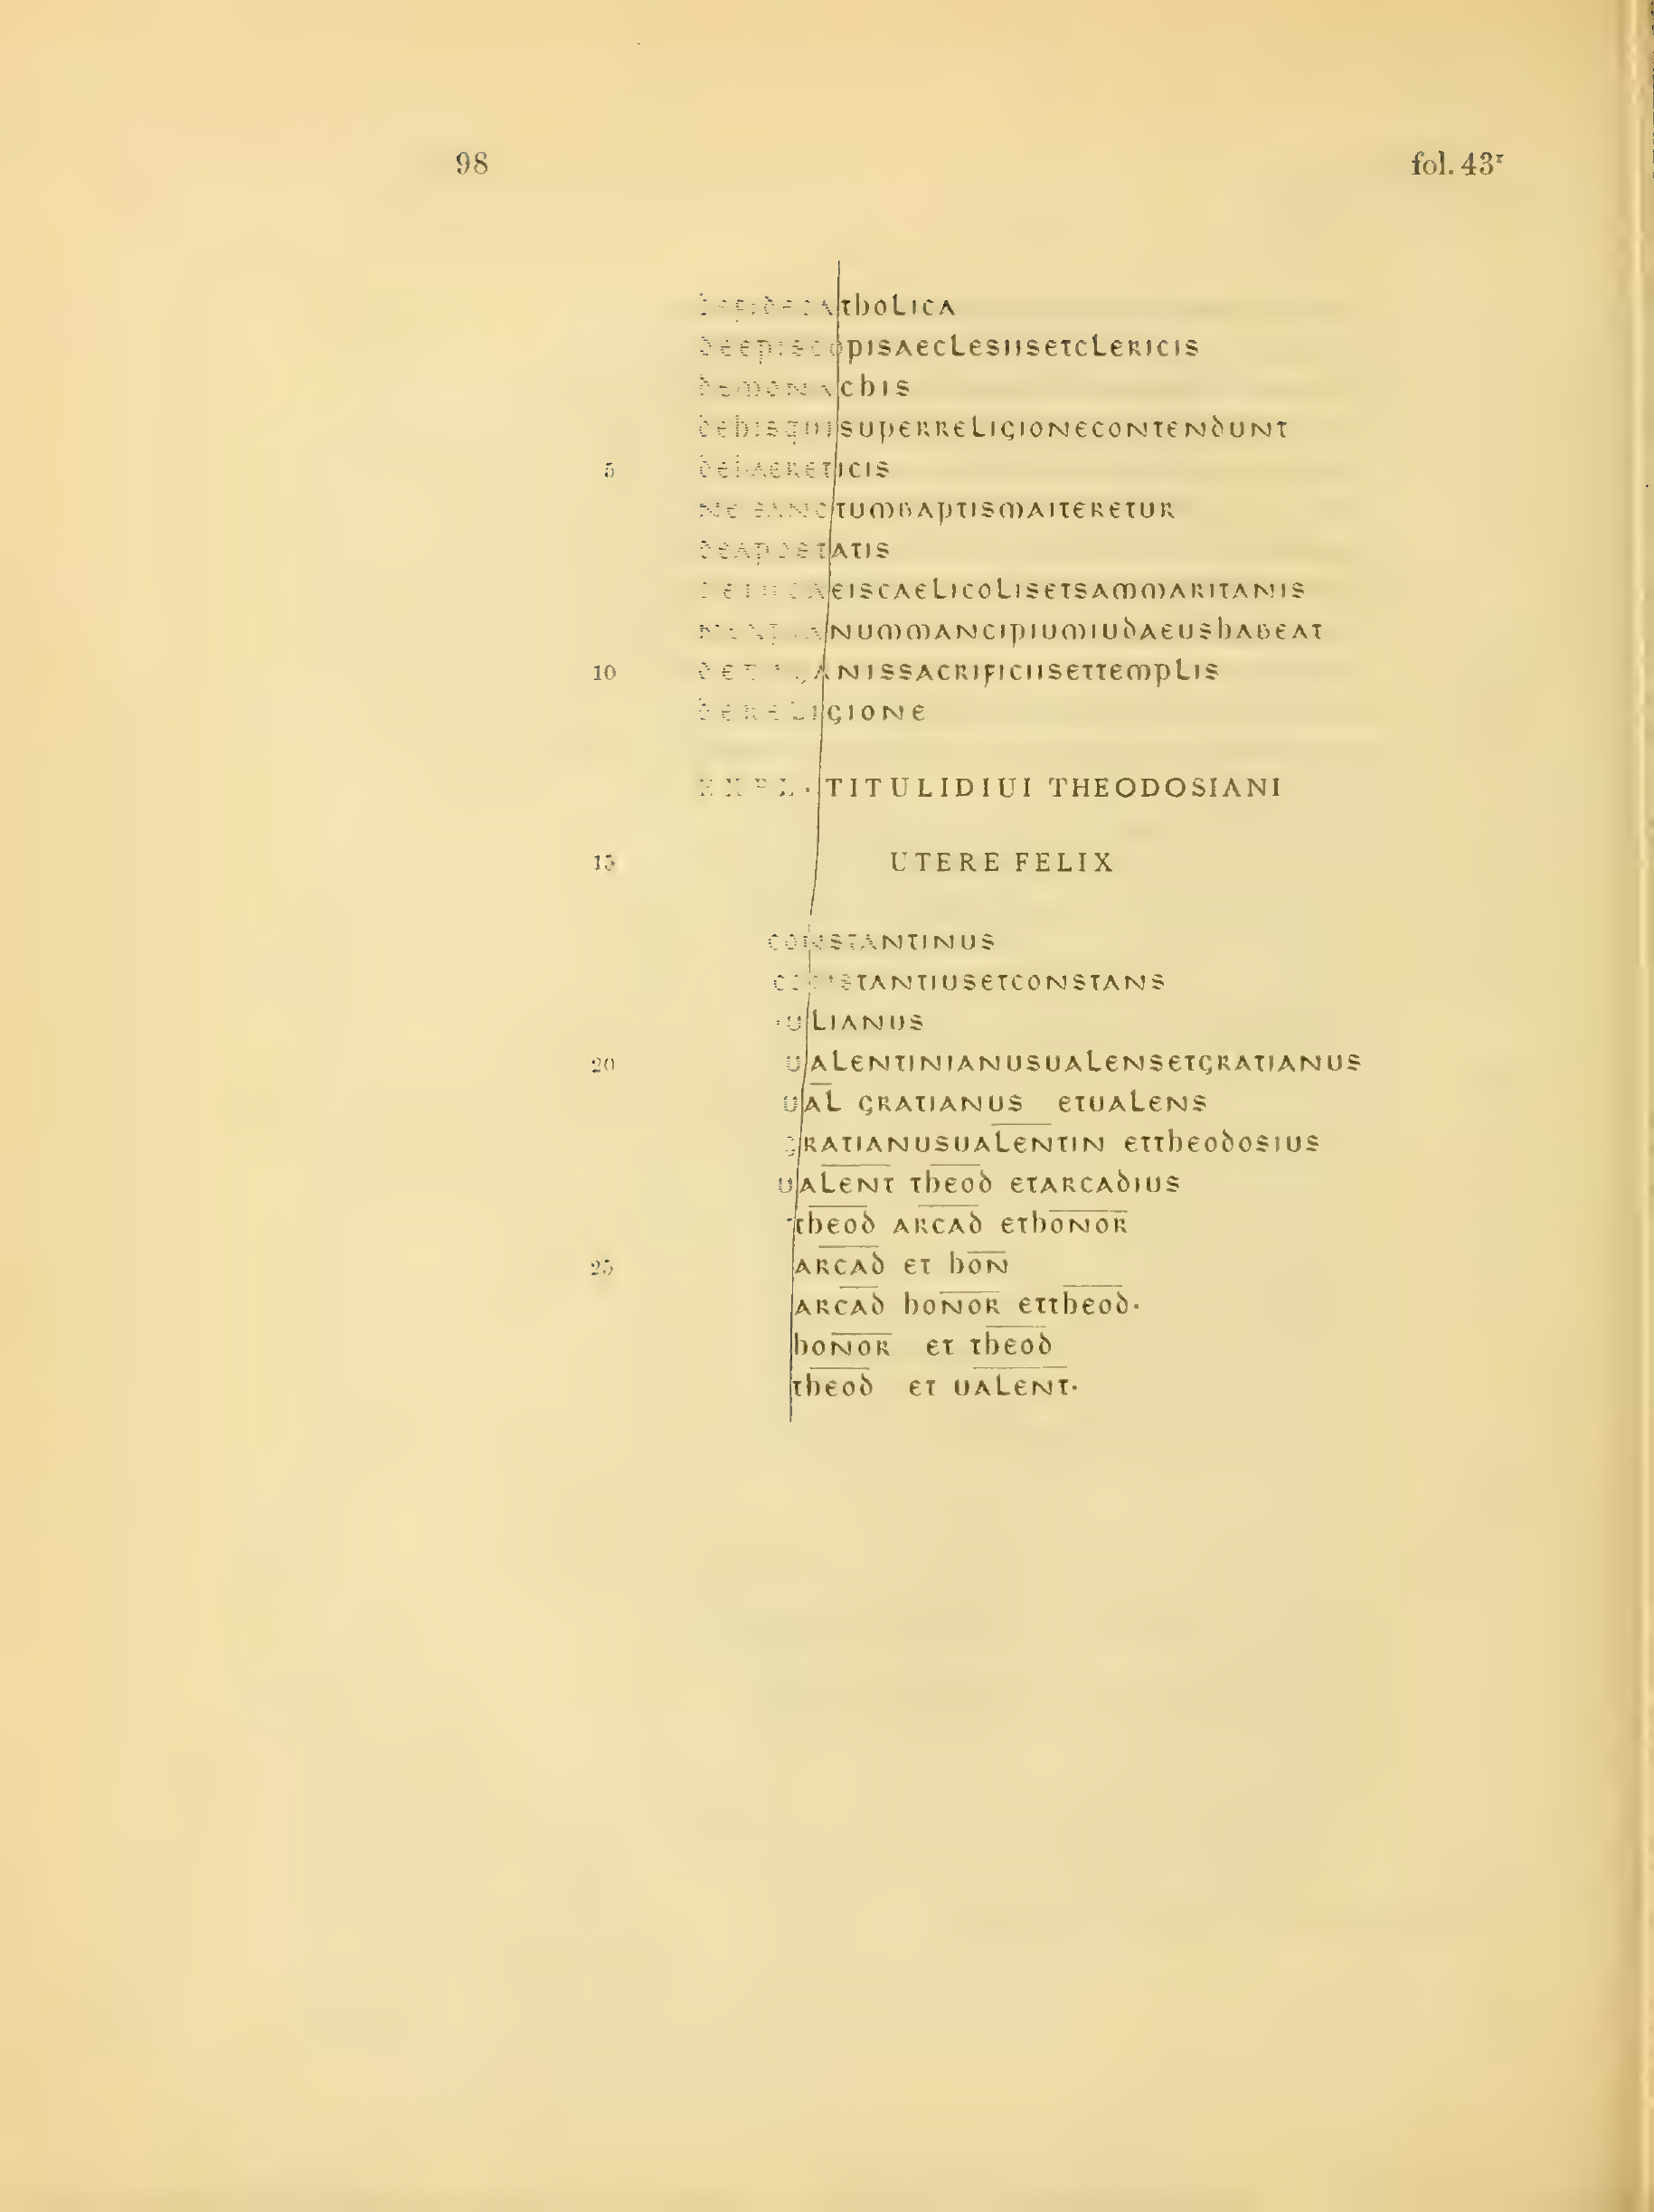 98 fol. 43r
defidecatholica
deepiscopisaeclesiisetclericis
demonachis
dehisquisuperreligionecontendunt
5 dehaereticis
ne sanctumbaptismaiteretur
deapostatis
deiudaeiscaelicolisetsammaritanis
nechristianummancipiumiudaeushabeat
10 depaganissacrificiisettemplis
dereligione
EXPL· TITULIDIUI THEODOSIANI
15 UTERE FELIX
constantinus
constantiusetconstans
iulianus
20 ualentinianusualensetgratianus
ual̅ gratianus etualens
gratianusualentin̅ ettheodosius
ualent̅ theod̅ etarcadius
theod̅ arcad̅ ethonor̅
25 arcad̅ et hon̅
arcad̅ honor̅ ettheod̅·
honor̅ et theod̅
theod̅ et ualent̅·